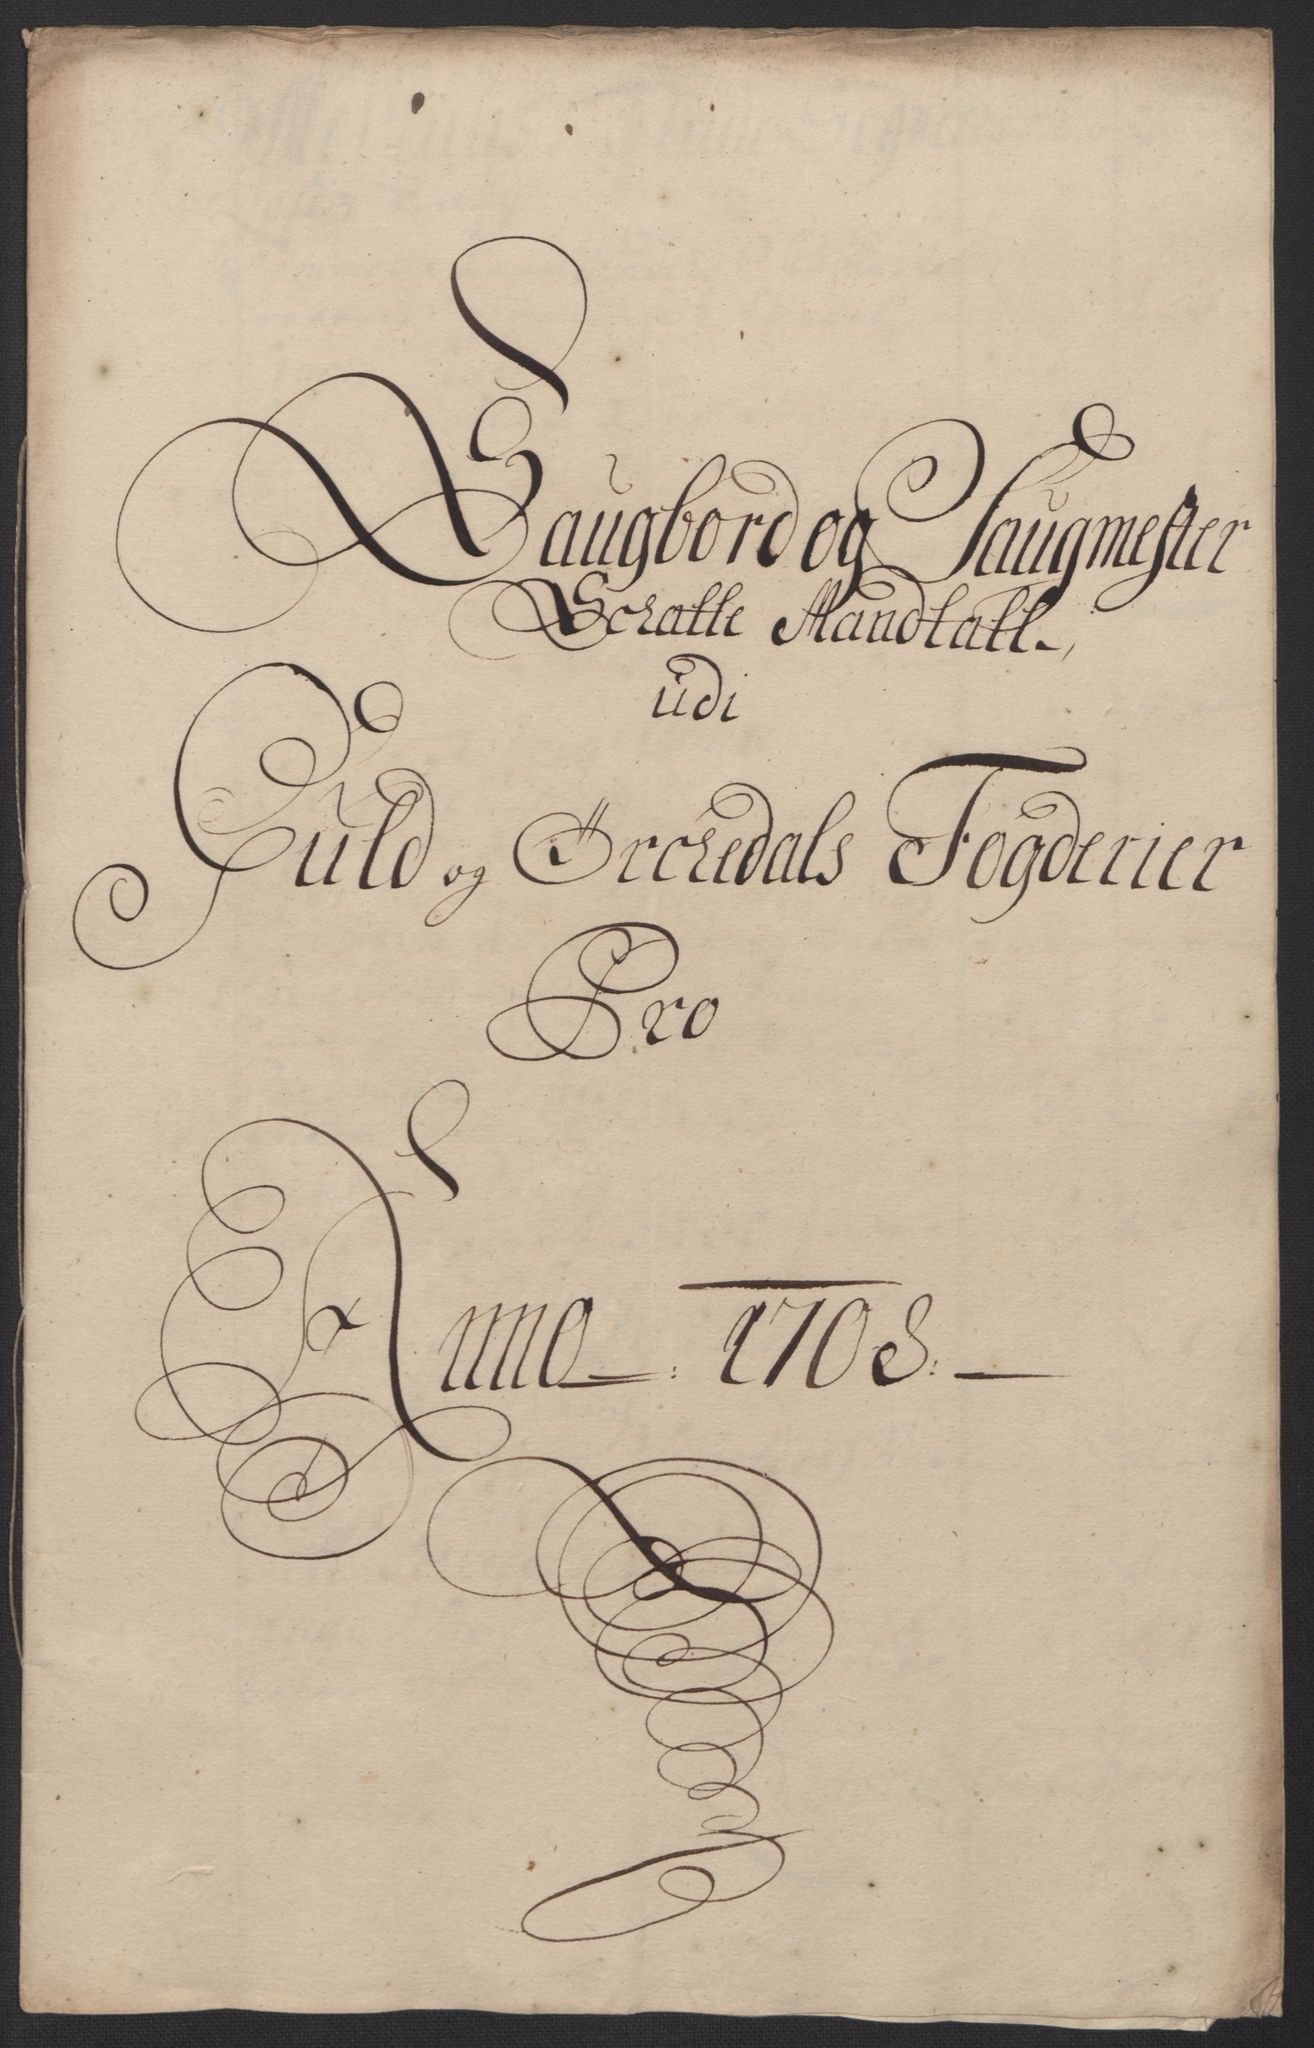 Saugbord og Saugmester
Schatte Mandtall
udi
Guld og Örchedals Fogderier
Pro
Anno 1708